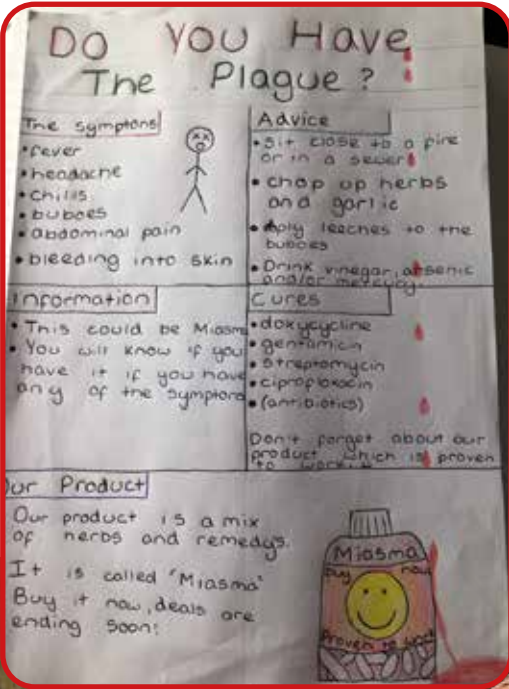 Do You Have
The Plague?
The symptoms
• fever
• headache
• chills
• buboes
• abdominal pain
• bleeding into skin
Advice
• Sit close to a fire
or in a sewer
• chop up herbs
and garlic
• Aply leeches to the
buboes
• Drink vinegar, arsenic
and/or mercury.
Information
• This could be Miasma
• You will know if you
have it if you have
any of the symptoms
Cures
• doxycycline
• gentamicin
• streptomycin
• ciprofloxacin
• (antibiotics)
Don't forget about our
product which is proven
to work
Our Product
Our product is a mix
of herbs and remedys.
It is called 'Miasma'
Buy it now, deals are
ending soon!
Miasma
Buy now
Proven to work